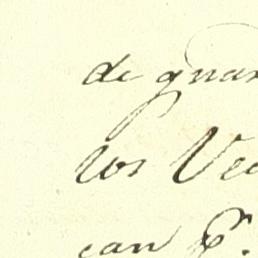 de guar
los Vec
can P.